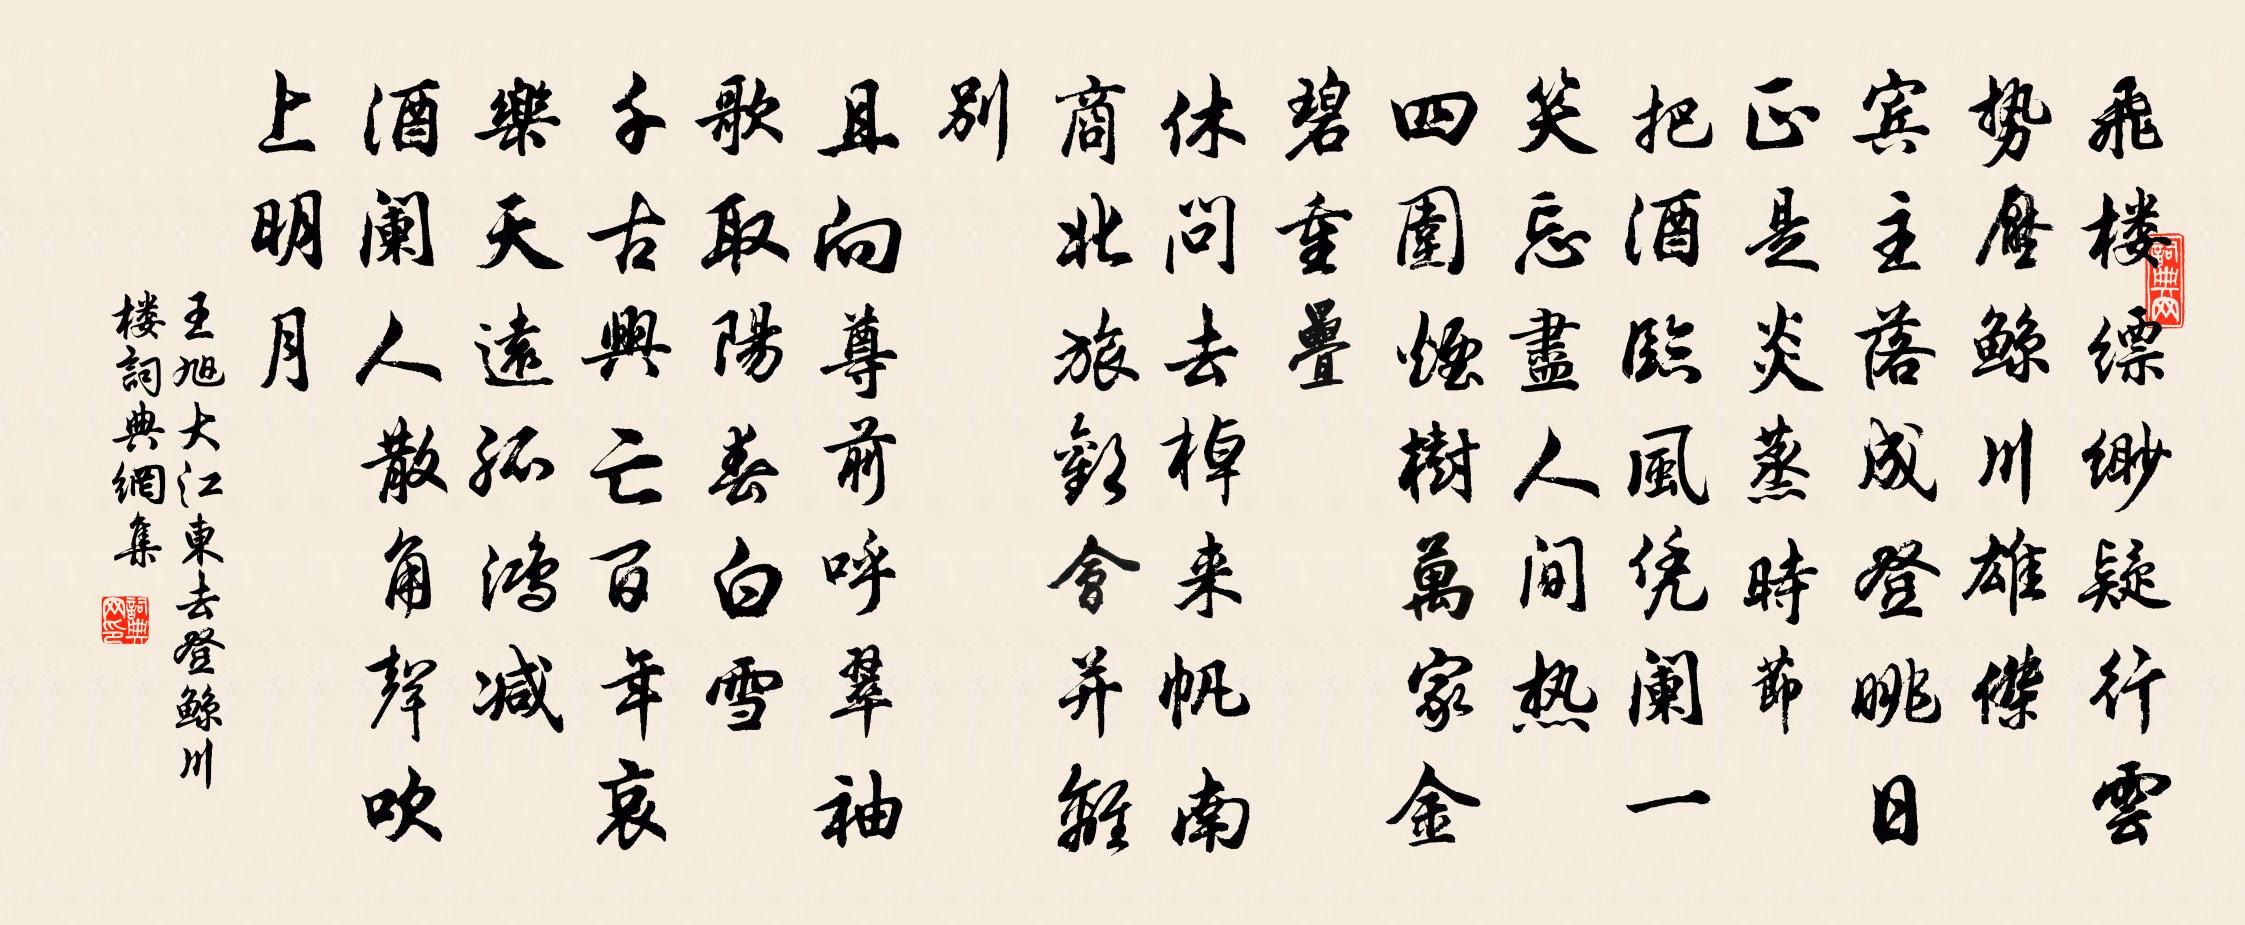 飛楼縹缈疑行雲
势壓鲸川雄傑
宾主落成登眺日
正是炎蒸時節
把酒臨風凭阑一
笑忘盡人间热
四圍煙樹萬家金
碧重疊
休问去棹来帆南
商北旅歡會并離
别
且向尊前呼翠袖
歌取陽春白雪
千古興亡百年哀
樂天遠孤鴻减
酒阑人散角聲吹
上明月
王旭大江東去登鲸川
楼詞典網集
詞典网
詞典网印